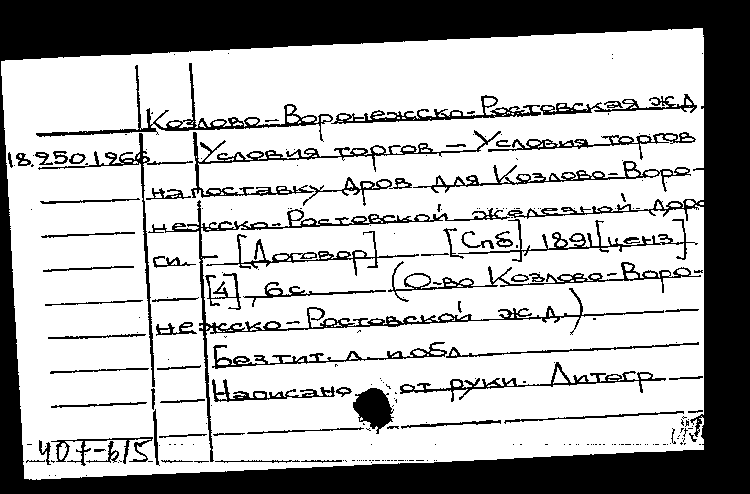 Козлово-Воронежско-Ростовская ж.д.
18.250.1966. Условия торгов. — Условия торгов
на поставку дров для Козлово-Воро-
нежско-Ростовской железной доро
ги. — [Договор] [Спб], 1891 [ценз]
[4], 6 с. (О-во Козлово-Воро-
нежско-Ростовской ж.д.).
Без тит. л. и обл.
Написано от руки. Литогр